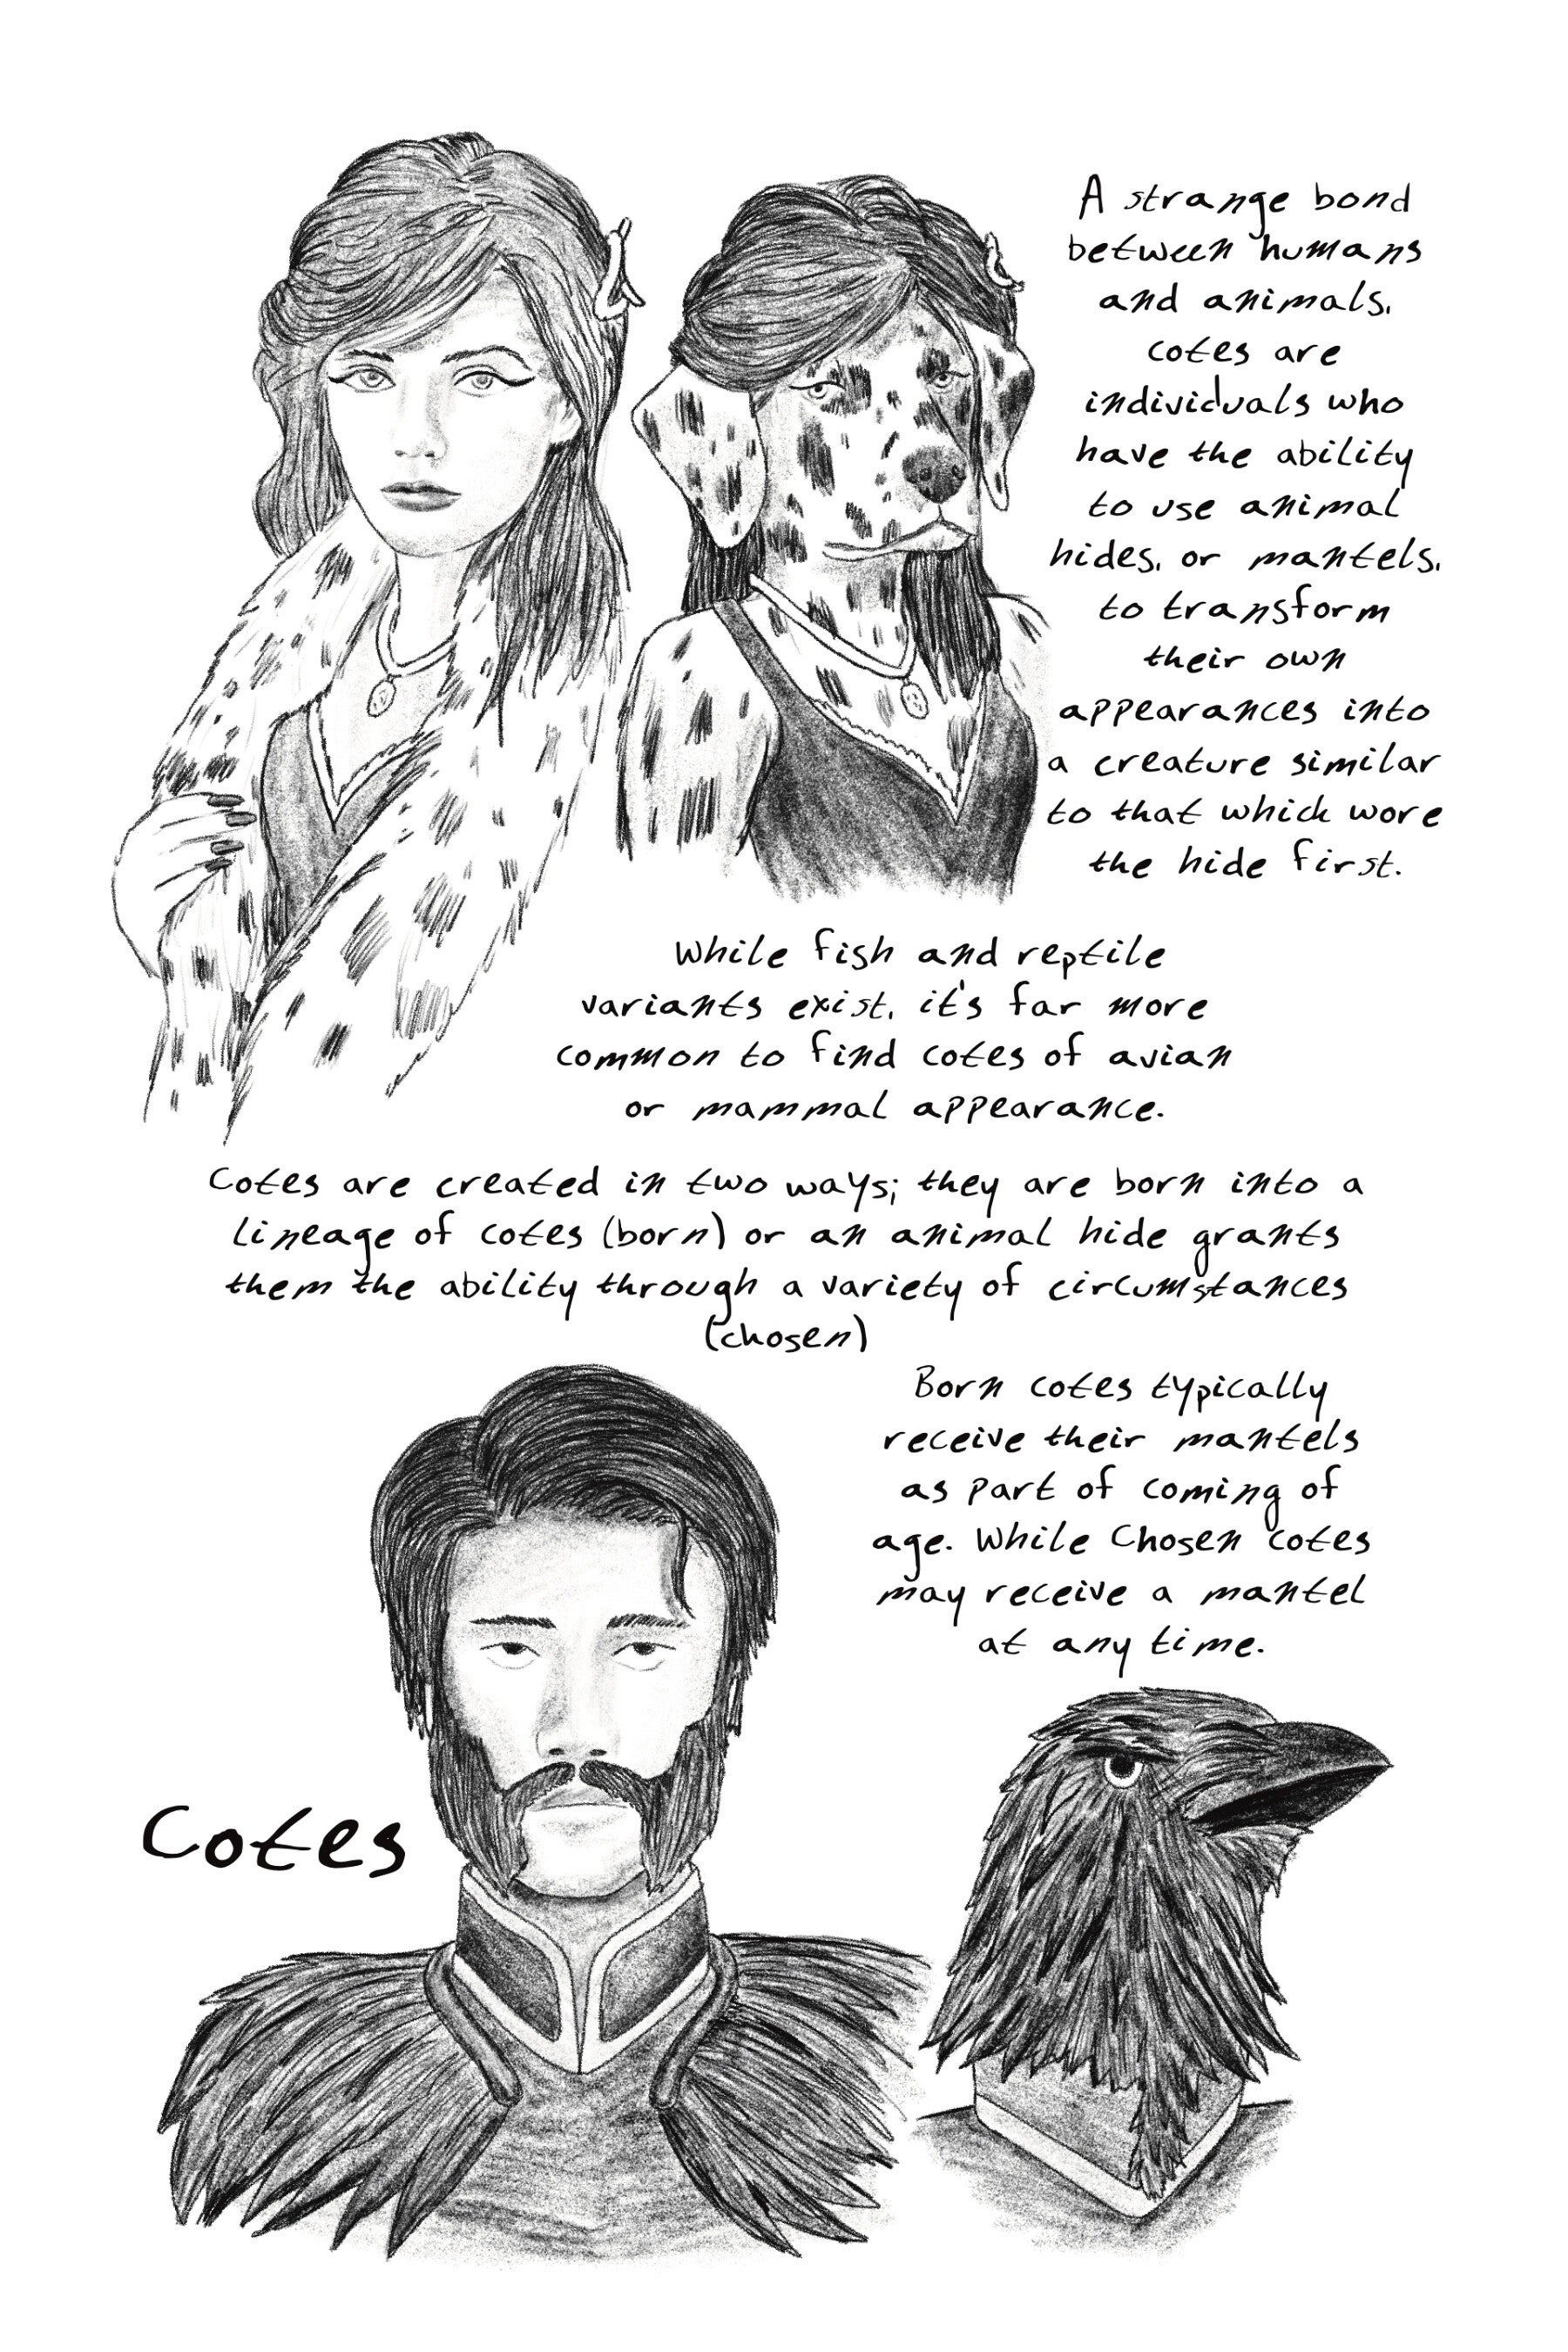 A strange bond
between humans
and animals,
cotes are
individuals who
have the ability
to use animal
hides, or mantels,
to transform
their own
appearances into
a creature similar
to that which wore
the hide first.
While fish and reptile
variants exist, it's far more
common to find cotes of avian
or mammal appearance.
Cotes are created in two ways; they are born into a
lineage of cotes (born) or an animal hide grants
them the ability through a variety of circumstances
(chosen)
Born cotes typically
receive their mantels
as part of coming of
age. While Chosen cotes
may receive a mantel
at any time.
Cotes